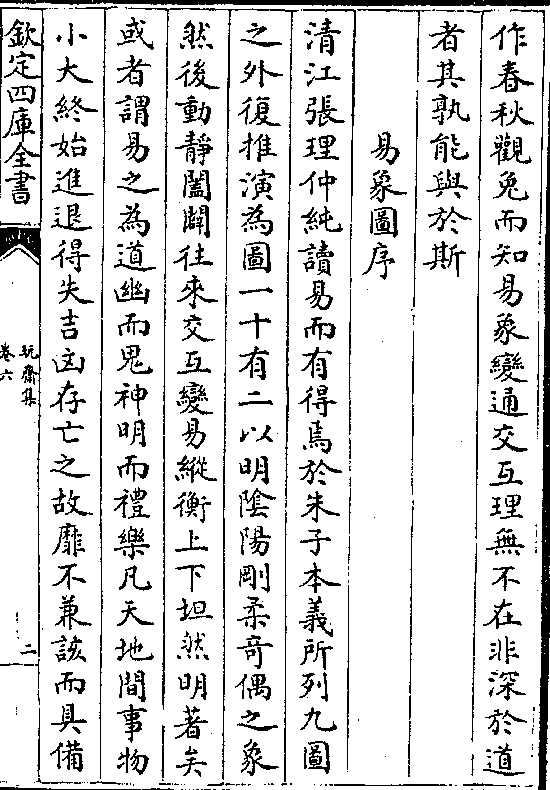 作春秋觀兔而知易象變通交互理無不在非深於道
者其孰能與於斯
易象圖序
清江張理仲純讀易而有得焉於朱子本義所列九圖
之外復推演為圖一十有二以明陰陽剛柔奇偶之象
然後動靜闔闢往來交互變易縱衡上下坦然明著矣
或者謂易之為道幽而鬼神明而禮樂凡天地間事物
小大終始進退得失吉凶存亡之故靡不兼該而具備
欽定四庫全書
玩齋集
卷六
二